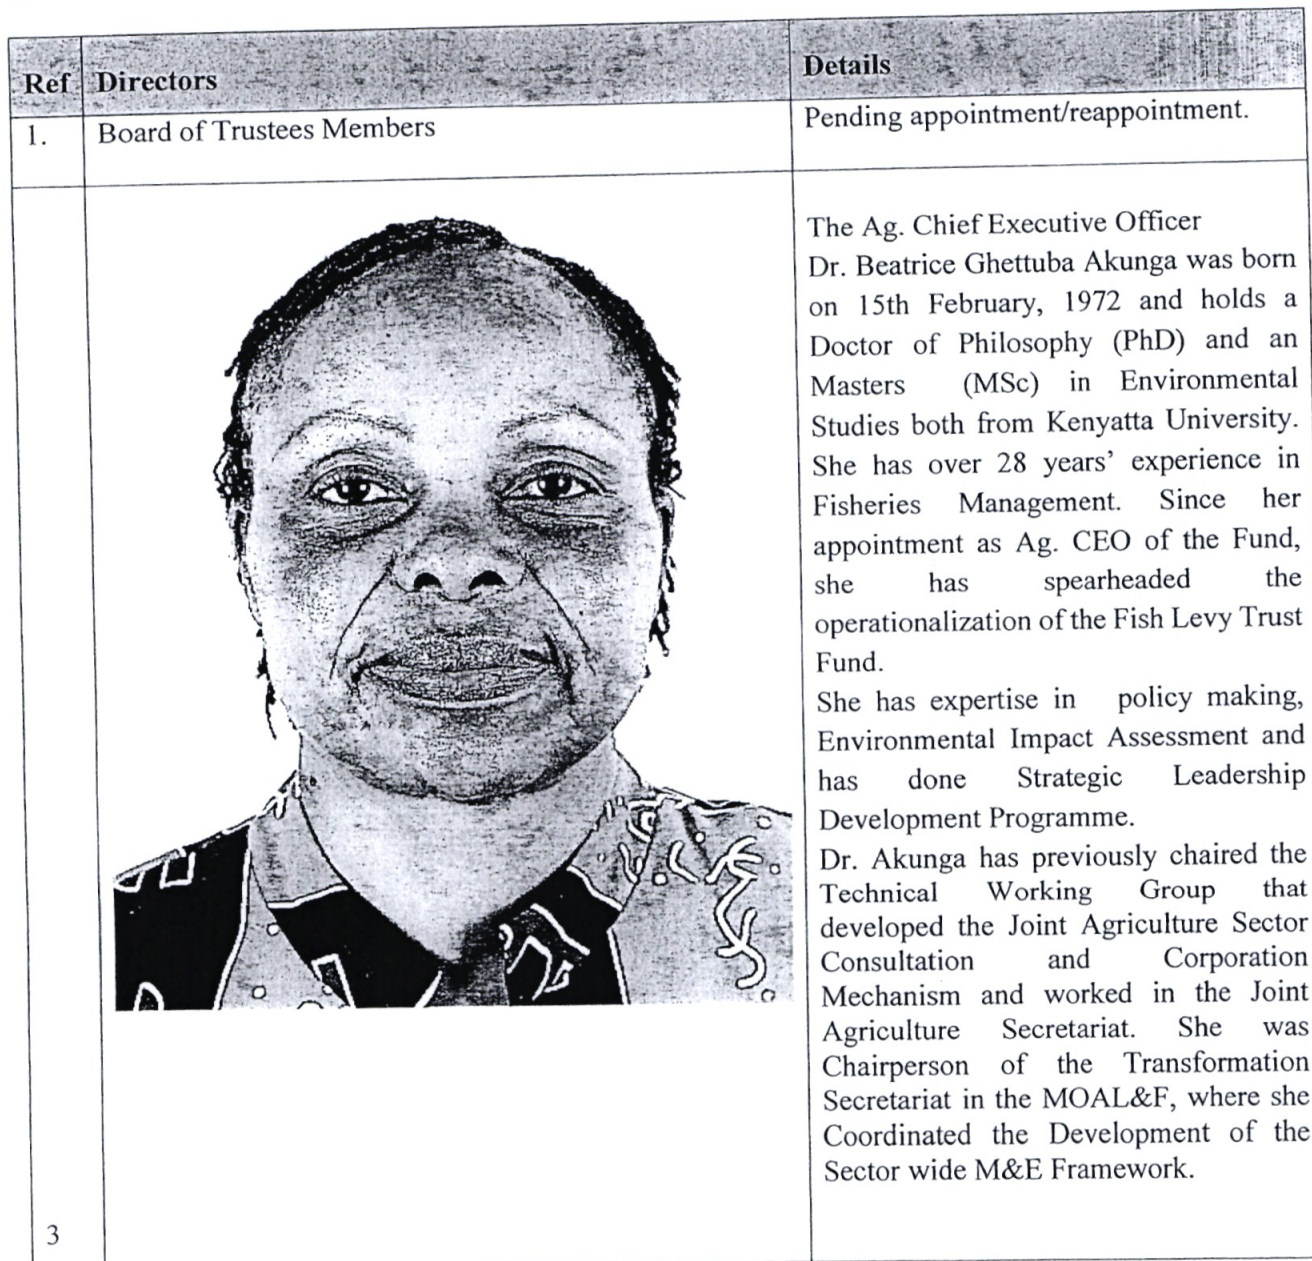 Ref Directors Details
1. Board of Trustees Members Pending appointment/reappointment.
The Ag. Chief Executive Officer
Dr. Beatrice Ghettuba Akunga was born
on 15th February, 1972 and holds a
Doctor of Philosophy (PhD) and an
Masters (MSc) in Environmental
Studies both from Kenyatta University.
She has over 28 years’ experience in
Fisheries Management. Since her
appointment as Ag. CEO of the Fund,
she has spearheaded the
operationalization of the Fish Levy Trust
Fund.
She has expertise in policy making,
Environmental Impact Assessment and
has done Strategic Leadership
Development Programme.
Dr. Akunga has previously chaired the
Technical Working Group that
developed the Joint Agriculture Sector
Consultation and Corporation
Mechanism and worked in the Joint
Agriculture Secretariat. She was
Chairperson of the Transformation
Secretariat in the MOAL&F, where she
Coordinated the Development of the
Sector wide M&E Framework.
3